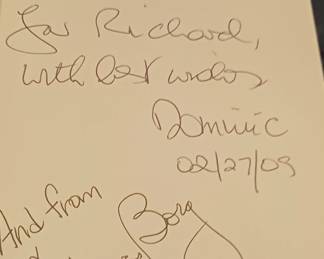 For Richard,
with best wishes
Dominic
02/27/09
And from